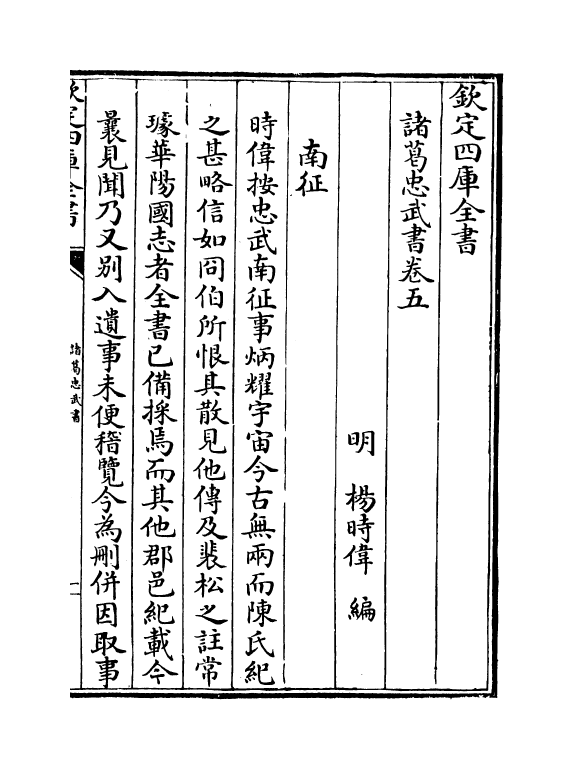 欽定四庫全書
諸葛忠武書卷五
明 楊時偉 編
南征
時偉按忠武南征事炳耀宇宙今古無兩而陳氏紀
之甚略信如冏伯所恨其散見他傳及裴松之註常
璩華陽國志者全書已備採焉而其他郡邑紀載今
曩見聞乃又別入遺事未便稽覽今為刪併因取事
欽定四庫全書
諸葛忠武書
一